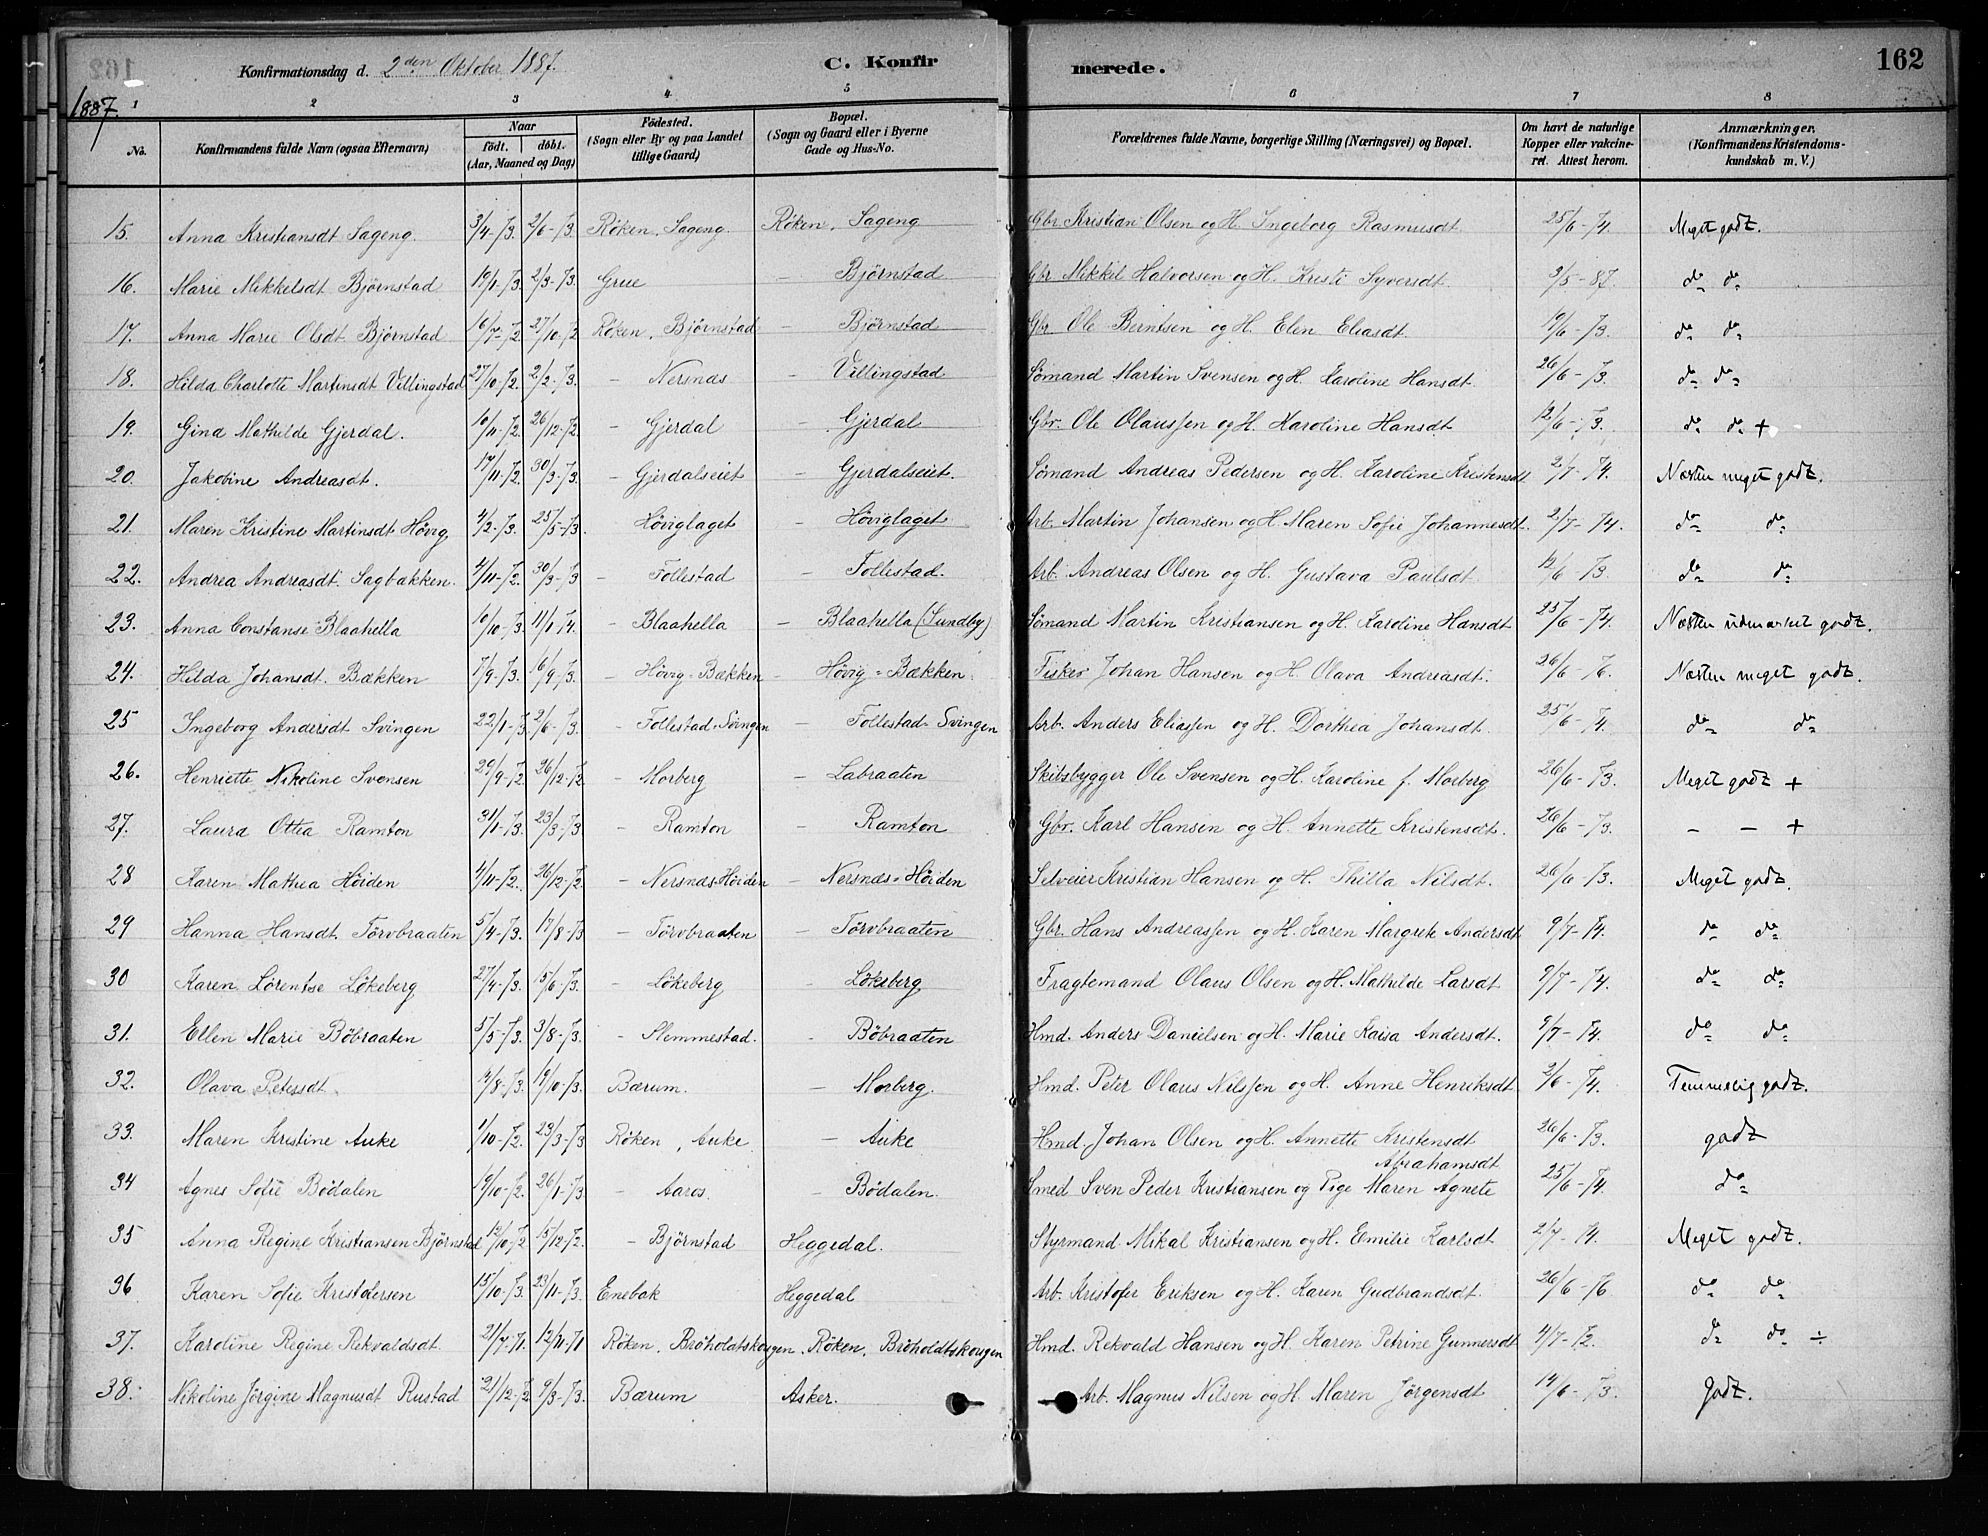 Konfirmationsdag d. 2den Oktober 1887. C. Konfirmerede. 162
1887.
1 2 3 4. 5 6 7 8
No. Konfirmandens fulde Navn (ogsaa Efternavn) Naar födt. döbt. (Aar, Maaned og Dag) Födested. (Sogn eller By og paa Landet tillige Gaard) Bopæl. (Sogn og Gaard eller i Byerne Gade og Hus-No. Forældrenes fulde Navne, borgerlige Stilling (Næringsvei) og Bopæl. Om havt de naturlige Kopper eller vakcineret. Attest herom. Anmærkninger. (Konfirmandens Kristendomskundskab m. V.)
15. Anna Kristiansdt Sageng. 3/4-73. 2/6-73. Røken, Sageng. Røken, Sageng Gbr Kristian Olsen og H. Ingeborg Rasmusdt. 25/6-74. Meget godt.
16. Marie Mikkelsdt Bjørnstad 19/1-73. 2/3-73. Grue – Bjørnstad Gbr Mikkel Halvorsen og H. Kristi Syversdt. 2/5-87. do do
17. Anna Marie Olsdt Bjørnstad 16/7-72. 27/10-72 Røken, Bjørnstad – Bjørnstad Gbr Ole Berntsen og H. Elen Eliasdt. 19/6-73. do do
18. Hilda Charlotte Martinsdt Villingstad 27/10-72. 2/2-73. – Nersnæs – Villingstad Sømand Martin Svensen og H. Karoline Hansdt. 26/6-73. do do
19. Gina Mathilde Gjerdal. 10/11-72. 26/12-72. – Gjerdal – Gjerdal Gbr. Ole Olaussen og H. Karoline Hansdt 12/6-73. do do +
20. Jakobine Andreasdt. 17/11-72. 30/3-73. – Gjerdalseiet – Gjerdalseiet. Sømand Andreas Pedersen og H. Karoline Kristensdt 2/7-74. Næsten meget godt.
21. Maren Kristine Martinsdt Høvig 4/2-73. 25/5-73. Høviglaget – Høviglaget Arb. Martin Johansen og H. Maren Sofie Johannesdt. 2/7-74. do do
22. Andrea Andreasdt. Sagbakken. 4/11-72. 30/3-73 – Follestad – Follestad. Arb. Andreas Olsen og H. Gustava Paulsdt 12/6-73. do do
23. Anna Constanse Blaahella 10/10-73. 11/1-74. – Blaahella – Blaahella (Sundby) Sømand Martin Kristiansen og H. Karoline Hansdt 25/6-74. Næsten udmærket godt.
24. Hilda Johansdt. Bækken 7/9-73. 16/9-73. – Høvig-Bækken – Høvig-Bækken. Fisker Johan Hansen og H. Olava Andreasdt. 26/6-76. Næsten meget godt.
25 Ingeborg Andersdt Svingen 22/1-73. 2/6-73. – Follestad-Svingen – Follestad-Svingen Arb. Anders Eliassen og H. Dorthea Johansdt. 25/6-74. do do
26. Henriette Nikoline Svensen 29/9-72. 26/12-72. – Morberg – Labraaten Skibsbygger Ole Svensen og H. Karoline f. Morberg 26/6-73. Meget godt +
27. Laura Ottea Ramton 31/1-73. 23/3-73 – Ramton – Ramton Gbr. Karl Hansen og H. Annette Kristensdt. 26/6-73. – – +
28 Karen Mathea Höiden 4/11-72. 26/12-72. – Nersnæs-Höiden – Nersnæs-Höiden Selveier Kristian Hansen og H. Thilla Nilsdt. 26/6-73. Meget godt.
29 Hanna Hansdt. Törvbraaten 5/4-73. 17/8-73 – Törvbraaten – Törvbraaten Gbr. Hans Andreassen og H. Karen Margrete Andersdt 9/7-74. do do
30 Karen Lörentse Lökeberg 27/4-73. 15/6-73. – Lökeberg – Lökeberg Fragtemand Olaus Olsen og H. Mathilde Larsdt 9/7-74. do do
31. Ellen Marie Böbraaten 5/5-73. 3/8-73. – Slemmestad. – Böbraaten Hmd. Anders Danielsen og H. Marie Kaisa Andersdt. 9/7-74. do do
32. Olava Petersdt. 4/8-73. 19/10-73. Bærum. – Morberg. Hmd. Peter Olaus Nilssen og H. Anne Henriksdt 2/6-74. Temmelig godt.
33. Maren Kristine Auke 1/10-72. 23/3-73 Røken, Auke – Auke Hmd. Johan Olsen og H. Annette Kristensdt 26/6-73. godt
34 Agnes Sofie Bödalen 19/10-72. 26/1-73 – Aaros. – Bödalen. Smed Sven Peder Kristiansen og Pige Maren Agnete Abrahamsdt 25/6-74. do
35 Anna Regine Kristiansen Björnstad 12/10-72 15/12-72. – Björnstad Heggedal. Styrmand Mikal Kristiansen og H. Emilie Karlsdt 2/7-74. Meget godt.
36 Karen Sofie Kristofersen 15/10-73. 23/11-73. Enebak Heggedal Arb. Kristofer Eriksen og H. Karen Gudbrandsdt. 26/6-76 do do
37. Karoline Regine Rekvaldsdt. 21/7-71. 12/11-71 Røken, Bröholdtskougen. Røken, Bröholdtskougen Hmd. Rekvald Hansen og H. Karen Petrine Gunnersdt 4/7-72. do do ÷
38. Nikoline Jörgine Magnusdt Rustad 21/12-72 9/3-73. Bærum Asker. Arb. Magnus Nilsen og H. Maren Jörgensdt 14/6-73. Godt.